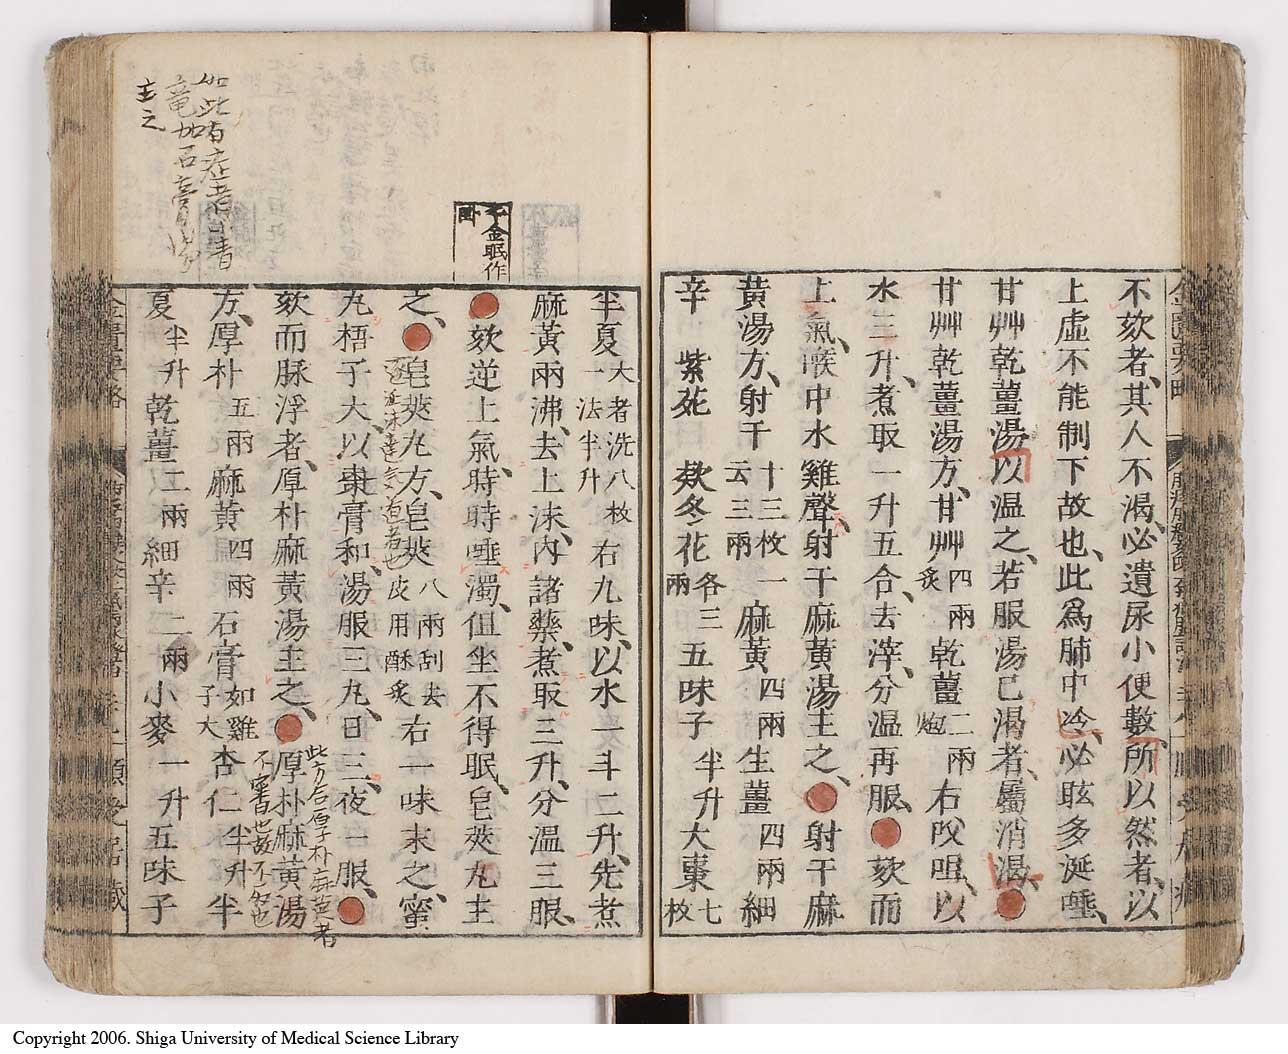 不欬者、其人不渴、必遺尿小便數、所以然者、以
上虛不能制下故也、此爲肺中冷、必眩多涎唾、
甘艸乾薑湯以温之、若服湯已渴者、屬消渴、
甘艸乾薑湯方、甘艸四兩炙乾薑二兩炮右㕮咀、以
水三升、煮取一升五合、去滓、分温再服、欬而
上氣、喉中水雞聲、射干麻黃湯主之、射干麻
黃湯方、射干十三枚一云三兩麻黃四兩生薑四兩細
辛紫菀欵冬花各三兩五味子半升大棗七枚
半夏大者洗八枚一法半升右九味、以水一斗二升、先煮
麻黃兩沸、去上沫、內諸藥、煮取三升、分温三服、
欬逆上氣、時時唾濁、但坐不得眠、皂莢丸主
之、皂莢丸方、皂莢八兩刮去皮用酥炙右一味末之、蜜
丸梧子大、以棗膏和、湯服三丸、日三、夜一服、
欬而脉浮者、厚朴麻黃湯主之、厚朴麻黃湯
方、厚朴五兩麻黃四兩石膏如雞子大杏仁半升半
夏半升乾薑二兩細辛二兩小麥一升五味子
金眠作
如此有症者小青
竜加石膏湯
主之
金匱要略